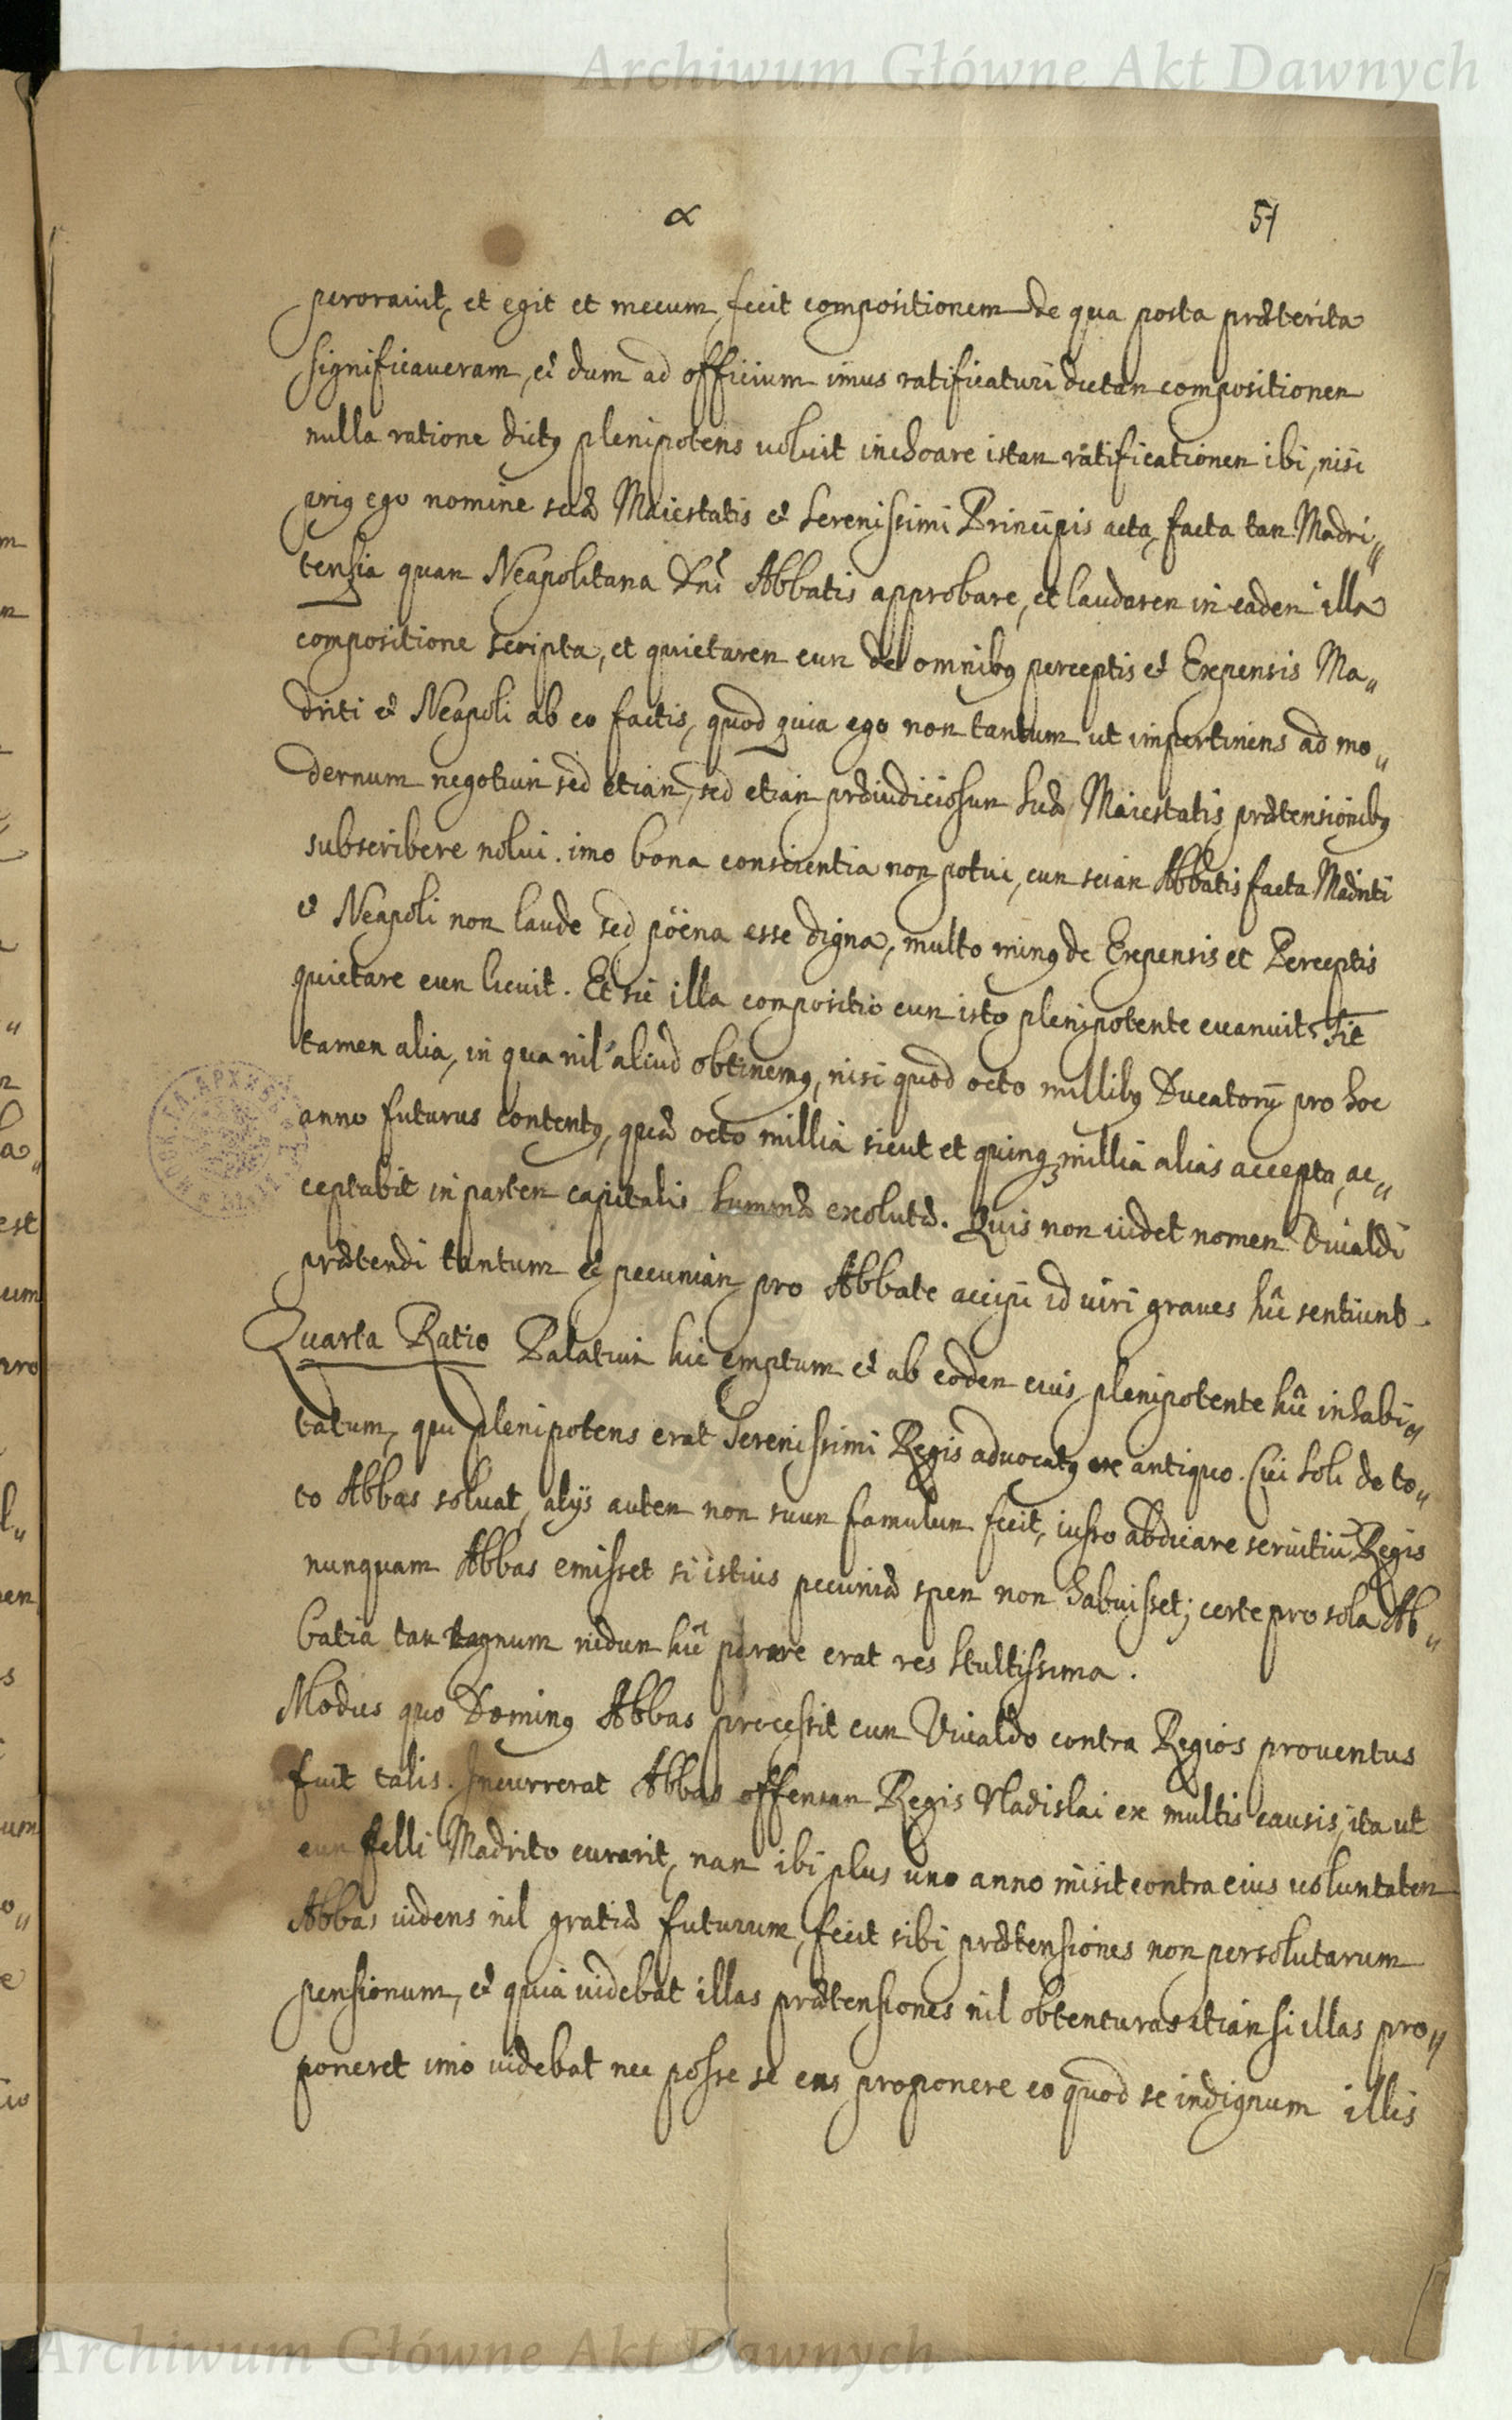 Archiwum Główne Akt Dawnych
∝ 51
perorauit, et egit et mecum fecit compositionem de qua posta præterita
significaueram, et dum ad officium imus ratificaturi dictam compositionem
nulla ratione dictus plenipotens uoluit inchoare istam ratificationem ibi, nisi
prius ego nomine suæ Maiestatis et Serenissimi Principis acta, facta tam Madri„
tensia quam Neapolitana Dni Abbatis approbare, et laudarem in eadem illa
compositione scripta, et quietarem eum de omnibus perceptis et Expensis Ma„
driti et Neapoli ab eo factis, quod quia ego non tantum ut impertinens ad mo„
dernum negotium sed etiam, sed etiam præiudiciosum suæ Maiestatis prætensionibus
subscribere nolui. imo bona conscientia non potui, cum sciam Abbatis facta Madriti
et Neapoli non laude sed pöena esse digna, multo minus de Expensis et Perceptis
quietare eum licuit. Et sic illa compositio cum isto plenipotente euanuit, fit
tamen alia, in qua nil aliud obtinemus, nisi quod octo millibus Ducatorū pro hoc
anno futurus contentus, quæ octo millia sicut et quinq millia alias accepta, ac„
ceptabit in partem capitalis summæ exolutæ. Quis non uidet nomen Viualdi
prætendi tantum et pecuniam pro Abbate accipi id uiri graues hîc sentiunt.
Quarta Ratio Palatium hic emptum et ab eodem eius plenipotente hîc inhabi„
tatum, qui plenipotens erat Serenissimi Regis aduocatus ex antiquo. Cui soli de to„
to Abbas soluat, alijs autem non suum famulum fecit, iusso abdicare seruitiū Regis
nunquam Abbas emisset si istius pecuniæ spem non habuisset; certe pro sola Ab„
batia tam magnum nidum hîc parare erat res stultissima.
Modus quo Dominus Abbas processit cum Viualdo contra Regios prouentus
fuit talis. Incurrerat Abbas offensam Regis Vladislai ex multis causis, ita ut
eum pelli Madrito curarit, nam ibi plus uno anno misit contra eius uoluntatem
Abbas uidens nil gratiæ futurum, fecit sibi prætensiones non persolutarum
pensionum, et quia uidebat illas prætensiones nil obtenturas etiam si illas pro„
poneret imo uidebat nec posse se eas proponere eo quod se indignum illis
Archiwum Główne Akt Dawnych